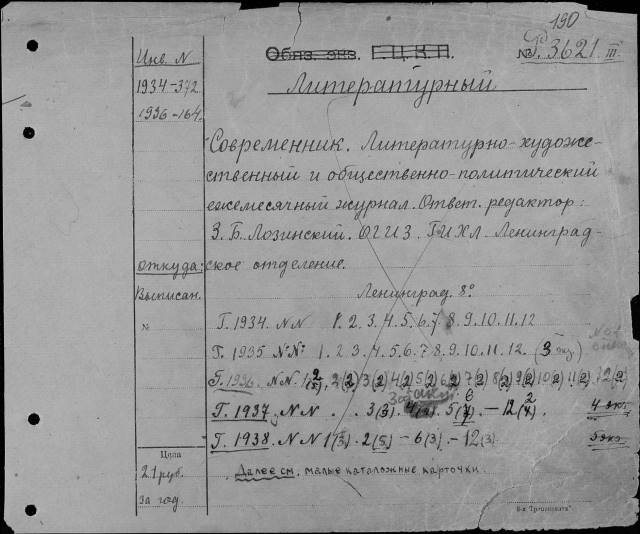 190
Инв. N
Обяз. экз. Г.Ц.К.П.
№ Р. 3621 III
1934-372
1936-164
Литературный
Современник. Литературно-художе-
ственный и общественно-политический
ежемесячный журнал. Ответ. редактор:
З. Б. Лозинский. ОГИЗ. ГИХЛ. Ленинград-
ское отделение.
откуда:
Выписан.
Ленинград. 8º
№
Г. 1934. N N 1. 2. 3. 4. 5. 6. 7. 8. 9. 10. 11. 12
Г. 1935 N N: 1. 2. 3. 4. 5. 6. 7. 8. 9. 10. 11. 12. (3 экз.)
Г. 1936. N N. 1(2) 2(2) 3(2) 4(2) 5(2) 6(2) 7(2) 8(2) 9(2) 10(2) 11(2) 12(2)
Г. 1937, N N . . 3(3). 5 - 12 . 4 экз.
Г. 1938. N N 1(3). 2(5) - 6(3). - 12(3) 5 экз.
Цена
21 руб.
за год.
Далее см. малые каталожные карточки.